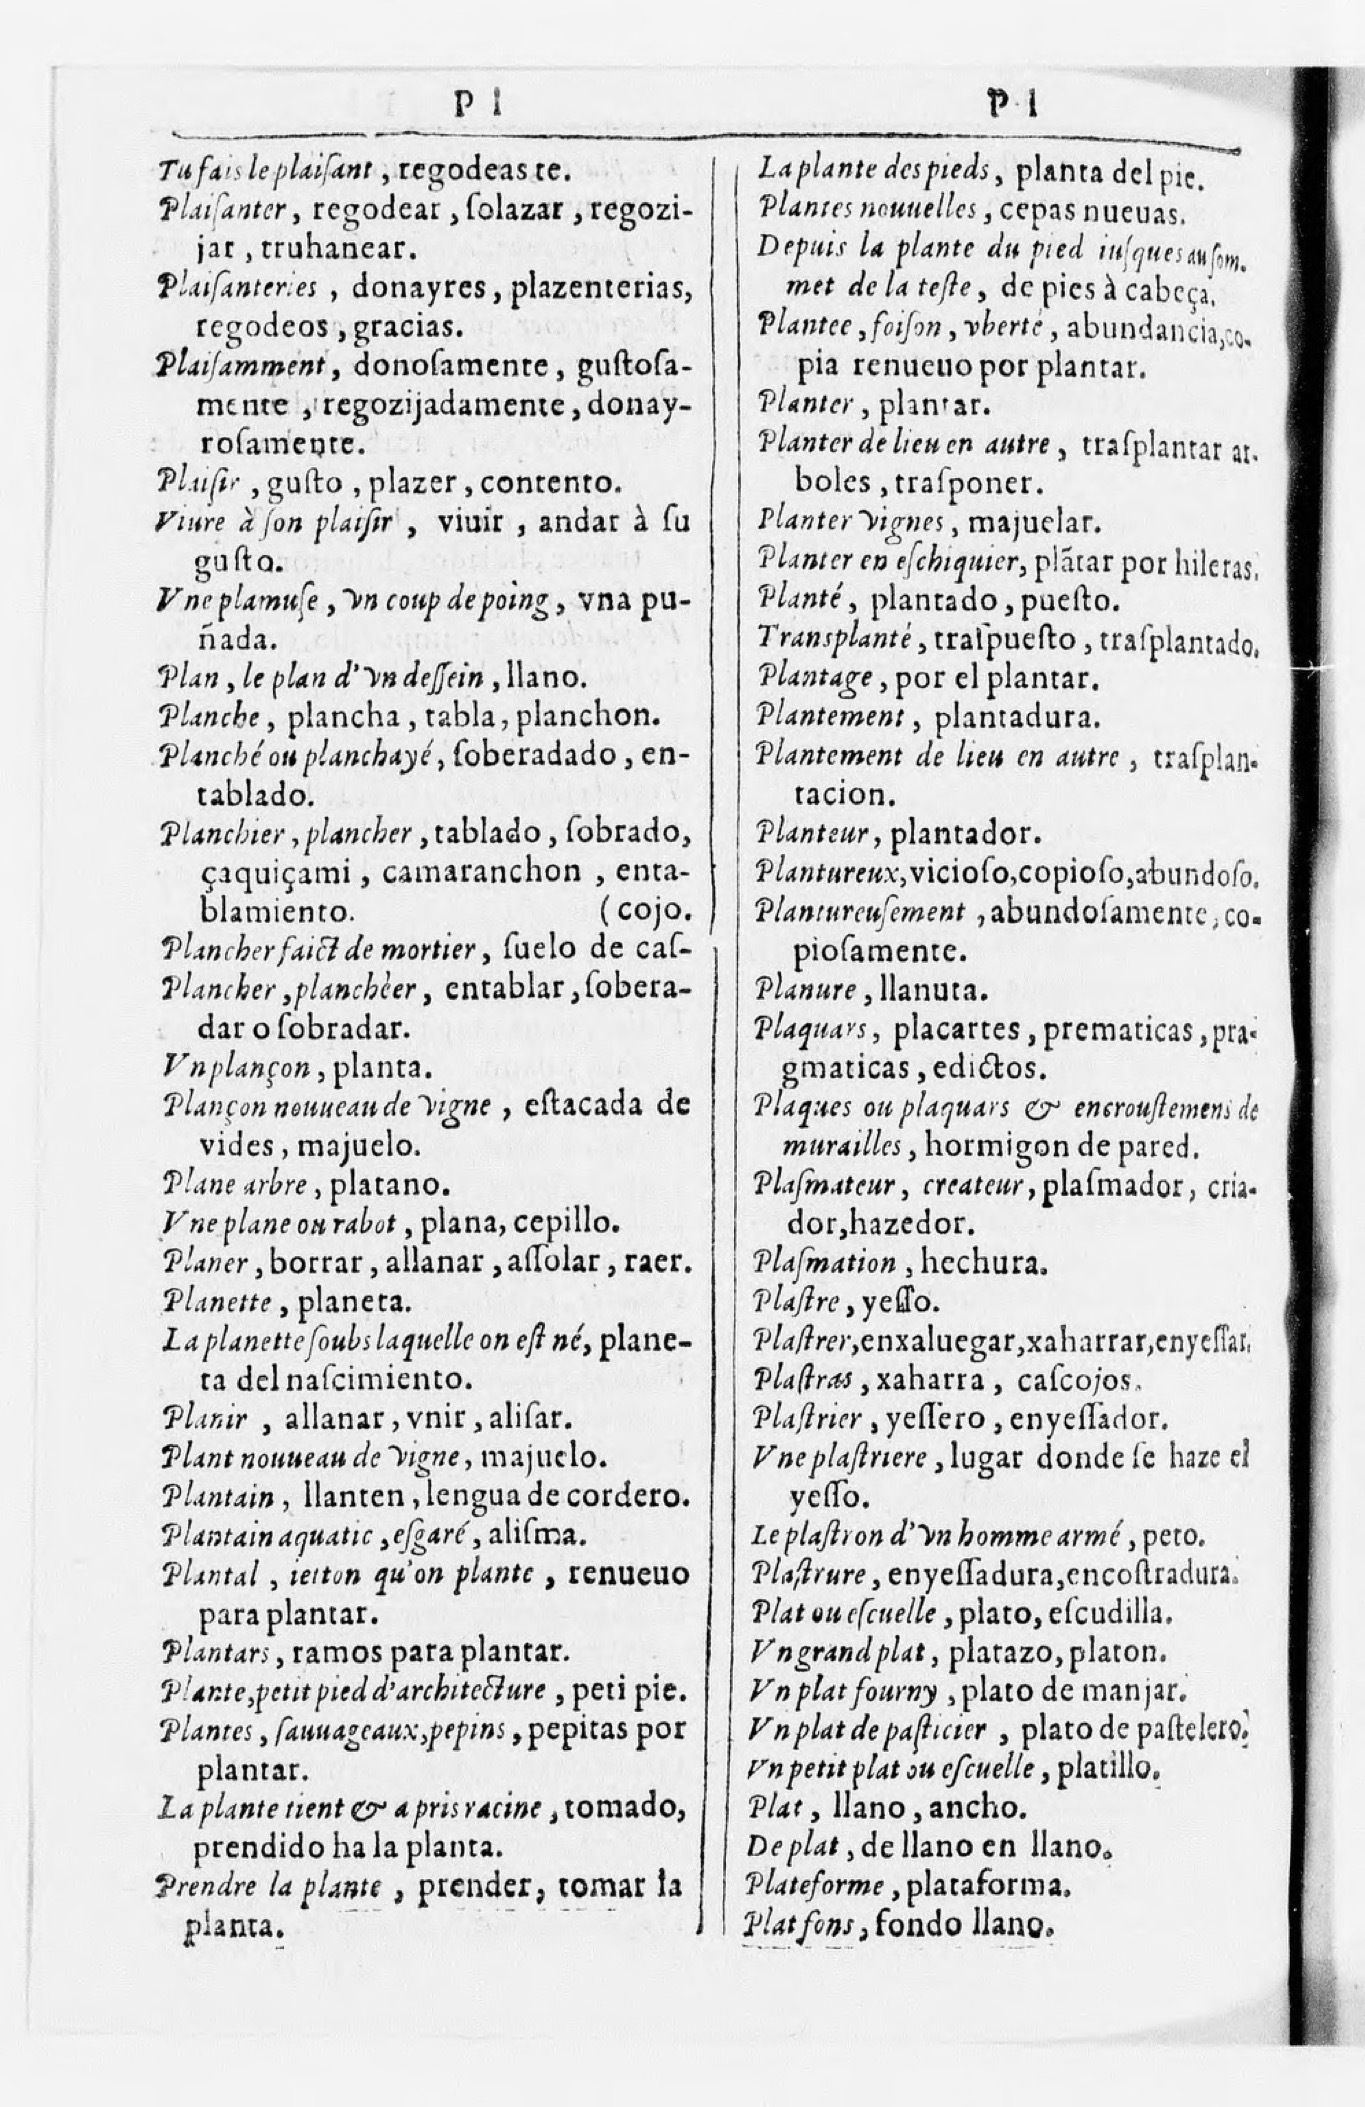 P l
Tu fais le plaiſant, regodeaste.
Plaiſanter, regodear, ſolazar, regozi-
jar, truhanear.
Plaiſanteries, donayres, plazenterias,
regodeos, gracias.
Plaiſamment, donoſamente, guſtoſa-
mente, regozijadamente, donay-
roſamente.
Plaiſir, guſto, plazer, contento.
Viure à ſon plaiſir, viuir, andar à ſu
guſto.
Vne plamuſe, vn coup de poing, vna pu-
ñada.
Plan, le plan d'vn deſſein, llano.
Planche, plancha, tabla, planchon.
Planché ou planchayé, ſoberadado, en-
tablado.
Planchier, plancher, tablado, ſobrado,
çaquiçami, camaranchon, enta-
blamiento. (cojo.
Plancher faict de mortier, ſuelo de caſ-
Plancher, planchèer, entablar, ſobera-
dar o ſobradar.
Vn plançon, planta.
Plançon nouueau de vigne, eſtacada de
vides, majuelo.
Plane arbre, platano.
Vne plane ou rabot, plana, cepillo.
Planer, borrar, allanar, aſſolar, raer.
Planette, planeta.
La planette ſoubs laquelle on eſt né, plane-
ta del naſcimiento.
Planir, allanar, vnir, aliſar.
Plant nouueau de vigne, majuelo.
Plantain, llanten, lengua de cordero.
Plantain aquatic, eſgaré, aliſma.
Plantal, ietton qu'on plante, renueuo
para plantar.
Plantars, ramos para plantar.
Plante, petit pied d'architecture, peti pie.
Plantes, ſauuageaux, pepins, pepitas por
plantar.
La plante tient & a pris racine, tomado,
prendido ha la planta.
Prendre la plante, prender, tomar la
planta.
P l
La plante des pieds, planta del pie.
Plantes nouuelles, cepas nueuas.
Depuis la plante du pied iuſques au ſom-
met de la teſte, de pies à cabeça.
Plantee, foiſon, vberté, abundancia, co-
pia renueuo por plantar.
Planter, plantar.
Planter de lieu en autre, traſplantar ar-
boles, traſponer.
Planter vignes, majuelar.
Planter en eſchiquier, plãtar por hileras.
Planté, plantado, pueſto.
Transplanté, traſpueſto, traſplantado.
Plantage, por el plantar.
Plantement, plantadura.
Plantement de lieu en autre, traſplan-
tacion.
Planteur, plantador.
Plantureux, vicioſo, copioſo, abundoſo.
Plantureuſement, abundoſamente, co-
pioſamente.
Planure, llanura.
Plaquars, placartes, prematicas, pra-
gmaticas, edictos.
Plaques ou plaquars & encrouſtemens de
murailles, hormigon de pared.
Plaſmateur, createur, plaſmador, cria-
dor, hazedor.
Plaſmation, hechura.
Plaſtre, yeſſo.
Plaſtrer, enxaluegar, xaharrar, enyeſſar.
Plaſtras, xaharra, caſcojos.
Plaſtrier, yeſſero, enyeſſador.
Vne plaſtriere, lugar donde ſe haze el
yeſſo.
Le plaſtron d'vn homme armé, peto.
Plaſtrure, enyeſſadura, encoſtradura.
Plat ou eſcuelle, plato, eſcudilla.
Vn grand plat, platazo, platon.
Vn plat fourny, plato de manjar.
Vn plat de paſticier, plato de paſtelero.
Vn petit plat ou eſcuelle, platillo.
Plat, llano, ancho.
De plat, de llano en llano.
Plateforme, plataforma.
Plat fons, fondo llano.